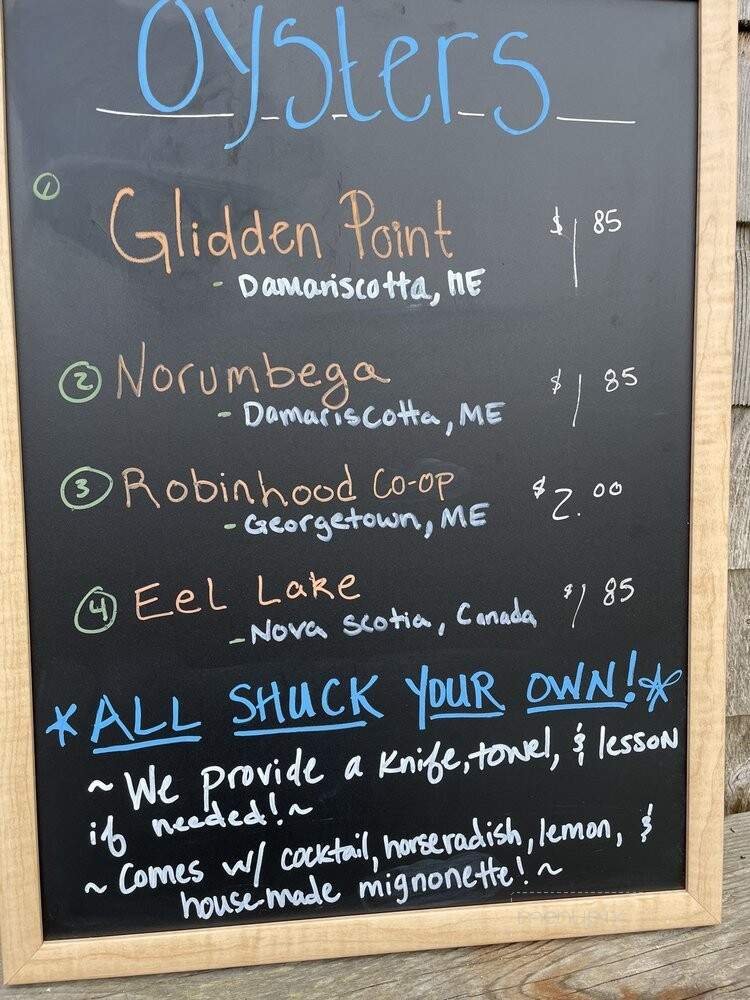 Oysters
① Glidden Point $1 85
- Damariscotta, ME
② Norumbega $1 85
- Damariscotta, ME
③ Robinhood Co-op $2.00
- Georgetown, ME
④ Eel Lake $1 85
- Nova Scotia, Canada
*ALL SHUCK YOUR OWN!*
~ We provide a knife, towel, & lesson
if needed! ~
~ Comes w/ cocktail, horseradish, lemon, &
house-made mignonette! ~